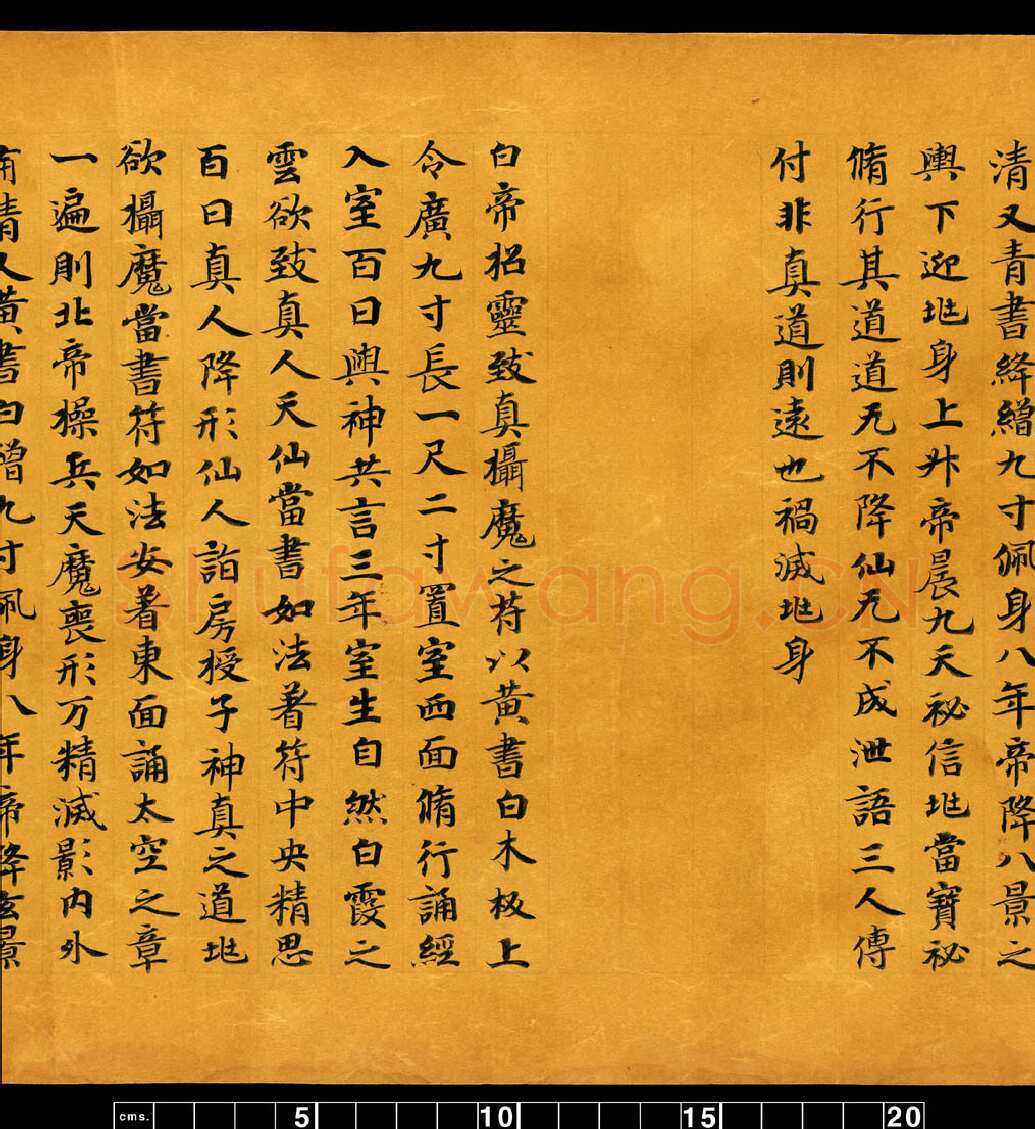 清又青書絳繒九寸佩身八年帝降八景之
輿下迎兆身上升帝晨九天祕信兆當寶祕
脩行其道道无不降仙无不成泄語三人傳
付非真道則遠也禍滅兆身
白帝招靈致真攝魔之符以黃書白木板上
令廣九寸長一尺二寸置室西面脩行誦經
入室百日與神共言三年室生自然白霞之
雲欲致真人天仙當書如法著符中央精思
百日真人降形仙人詣房授子神真之道兆
欲攝魔當書符如法安著東面誦太空之章
一遍則北帝操兵天魔喪形万精滅影內外
清又黃書白繒九寸佩身八年帝降玄景
shufawang.CN
cms. 5 10 15 20